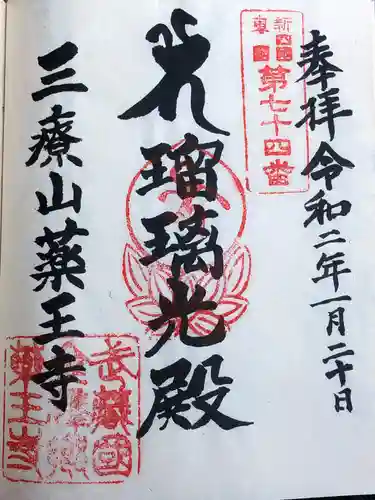 奉拝 令和二年一月二十日
新四国
第七十四番
瑠璃光殿
三療山薬王寺
武蔵国